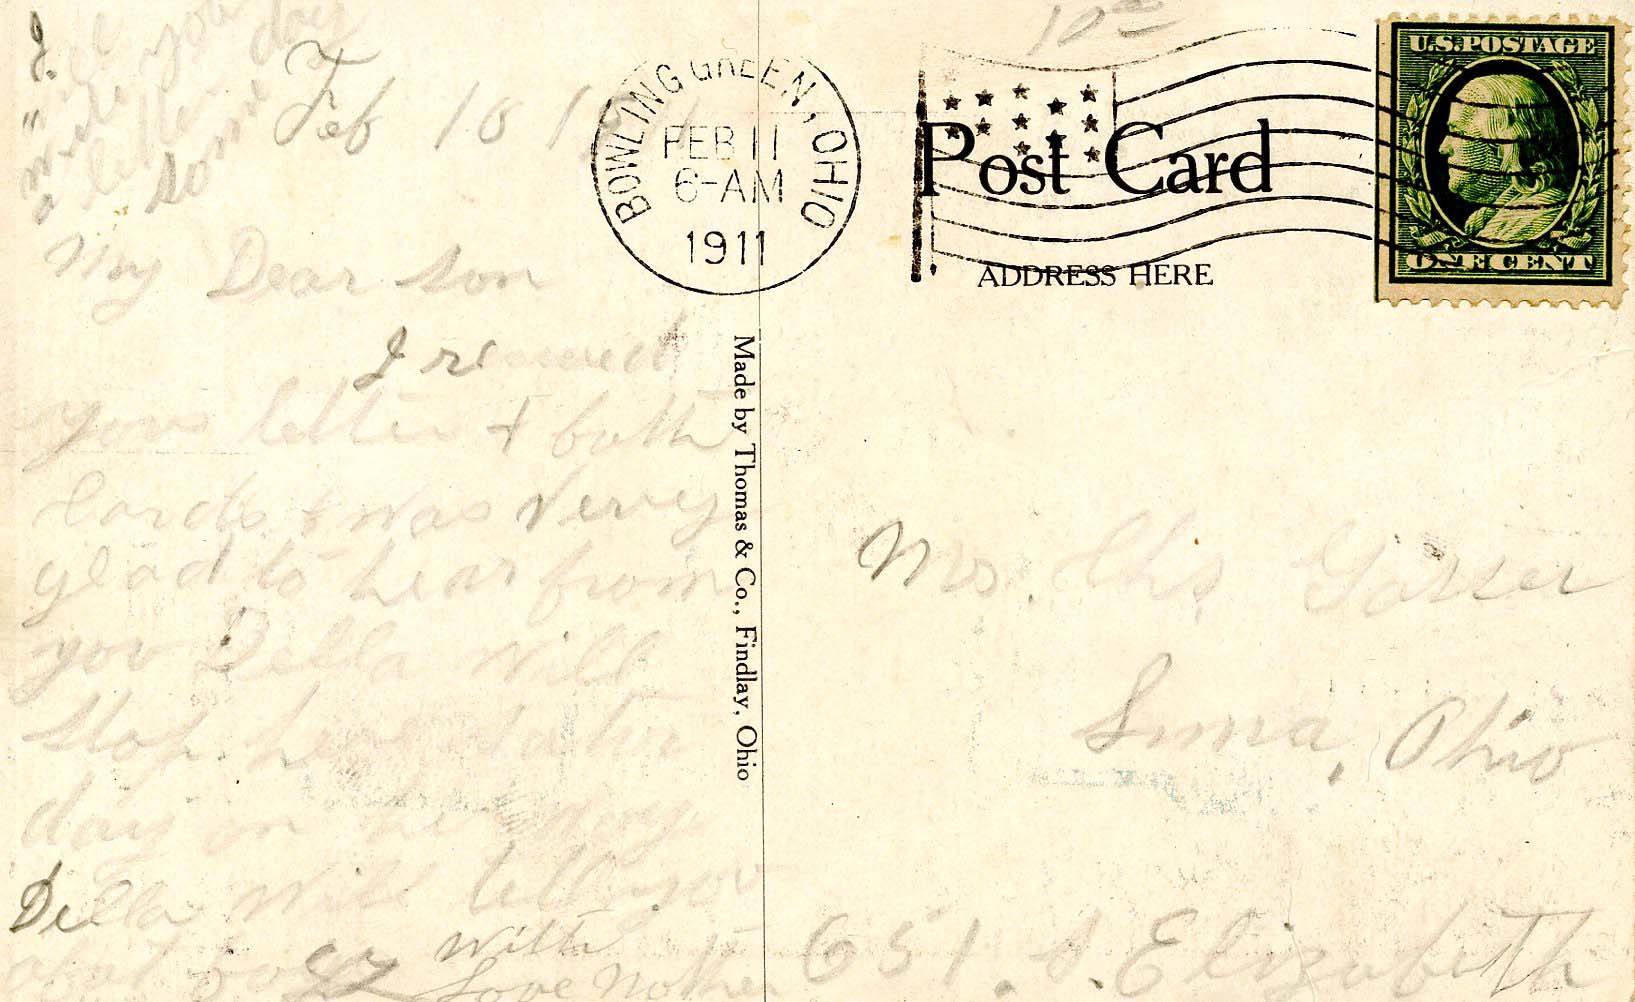 10¢
U.S. POSTAGE
ONE CENT
BOWLING GREEN, OHIO
FEB 11
6-AM
1911
Post Card
ADDRESS HERE
Made by Thomas & Co., Findlay, Ohio
I will
you
a letter some day
Feb 10 1
My Dear son
I received
your letter + both
Cards + was very
glad to hear from
you Della will
stop here Satur
day on her way
Della will tell you
Love Mother
Mrs. Chs.
Lima, Ohio
651. S. Elizabeth